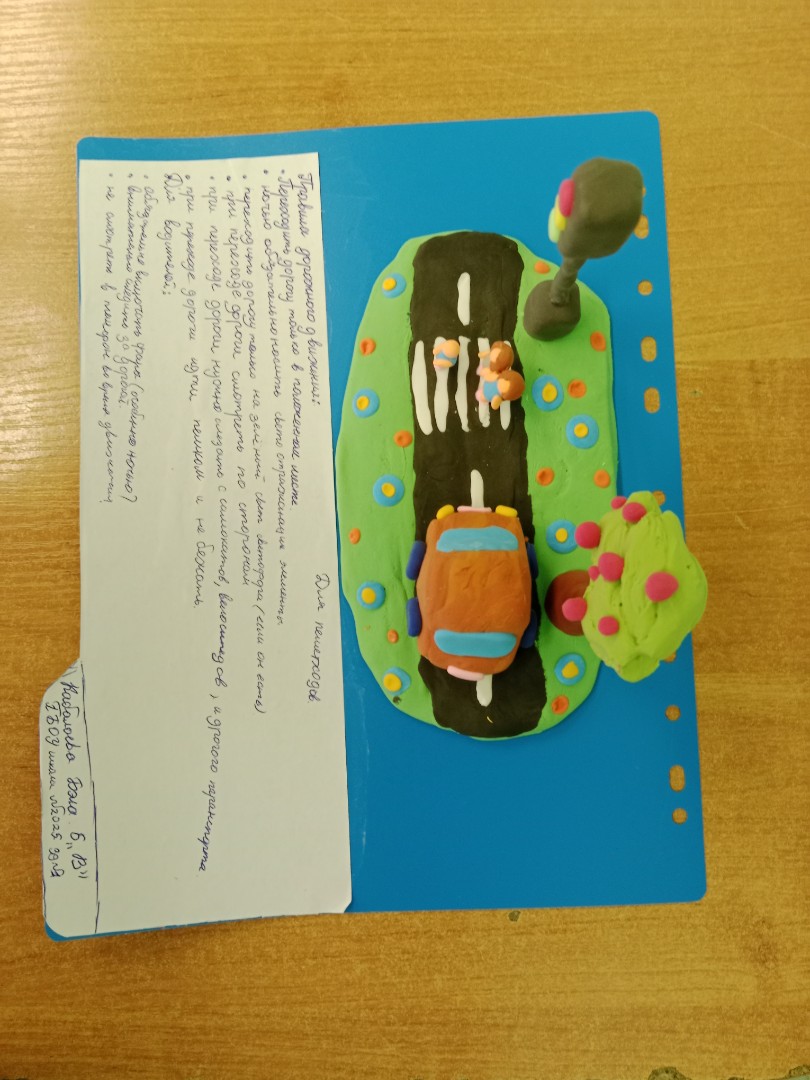 Правила дорожного движения:
Для пешеходов
• Переходить дорогу только в положенном месте.
• ночью обязательно носить свето отражающие элементы.
• переходить дорогу только на зелёный свет светофора (если он есть)
• при переходе дороги смотреть по сторонам
• при переходе дороги нужно слезать с самокатов, велосипедов, и другого транспорта
• при переходе дороги идти пешком и не бежать.
Для водителей:
• обязательно включать фары (особенно ночью)
• внимательно следить за дорогой
• не смотреть в телефон во время движения
6 "В"
школа №2025